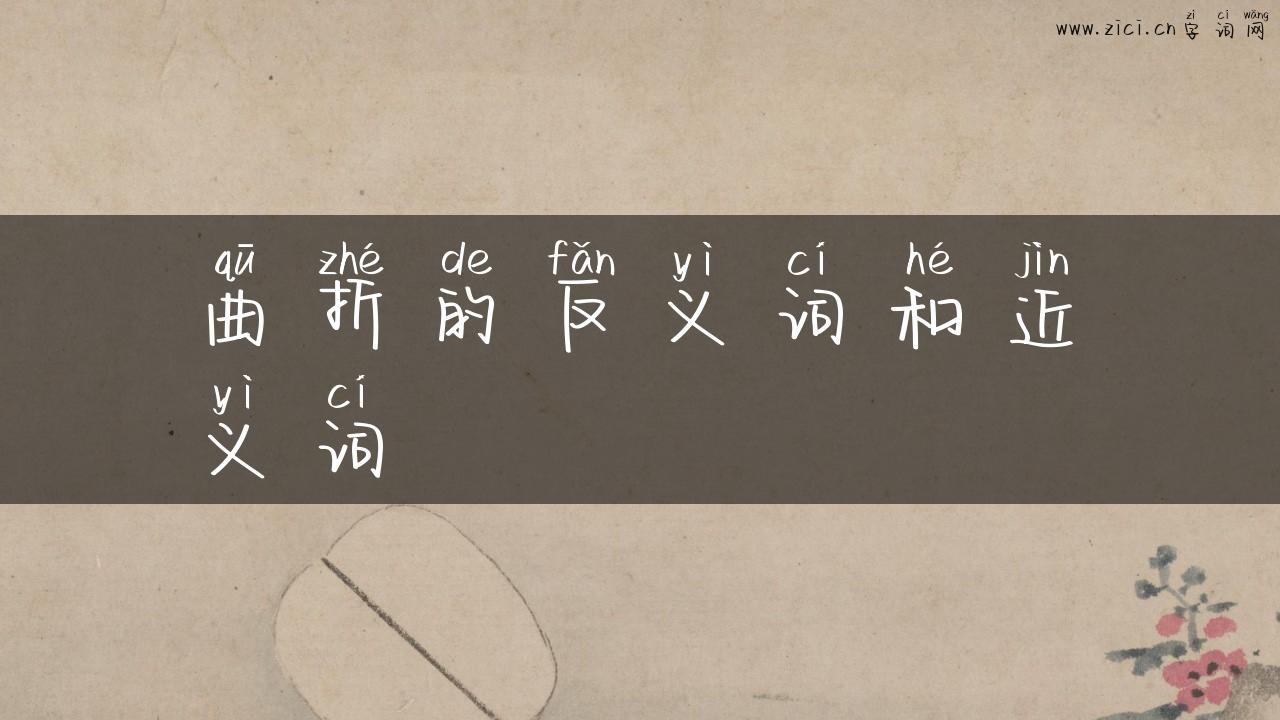 zì cí wǎng
www.zici.cn 字词网
qū zhé de fǎn yì cí hé jìn
曲折的反义词和近
yì cí
义词